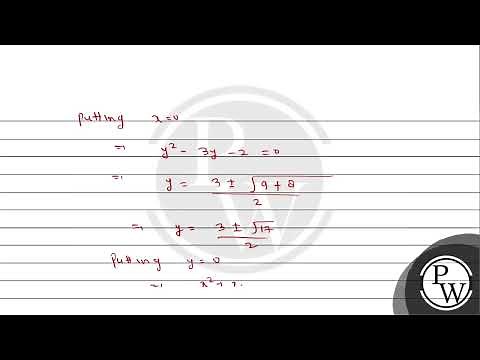 Putting x=0
⇒ y² - 3y - 2 = 0
⇒ y = 3 ± √9 + 8 / 2
⇒ y = 3 ± √17 / 2
Putting y = 0
⇒ x² +
PW
PW